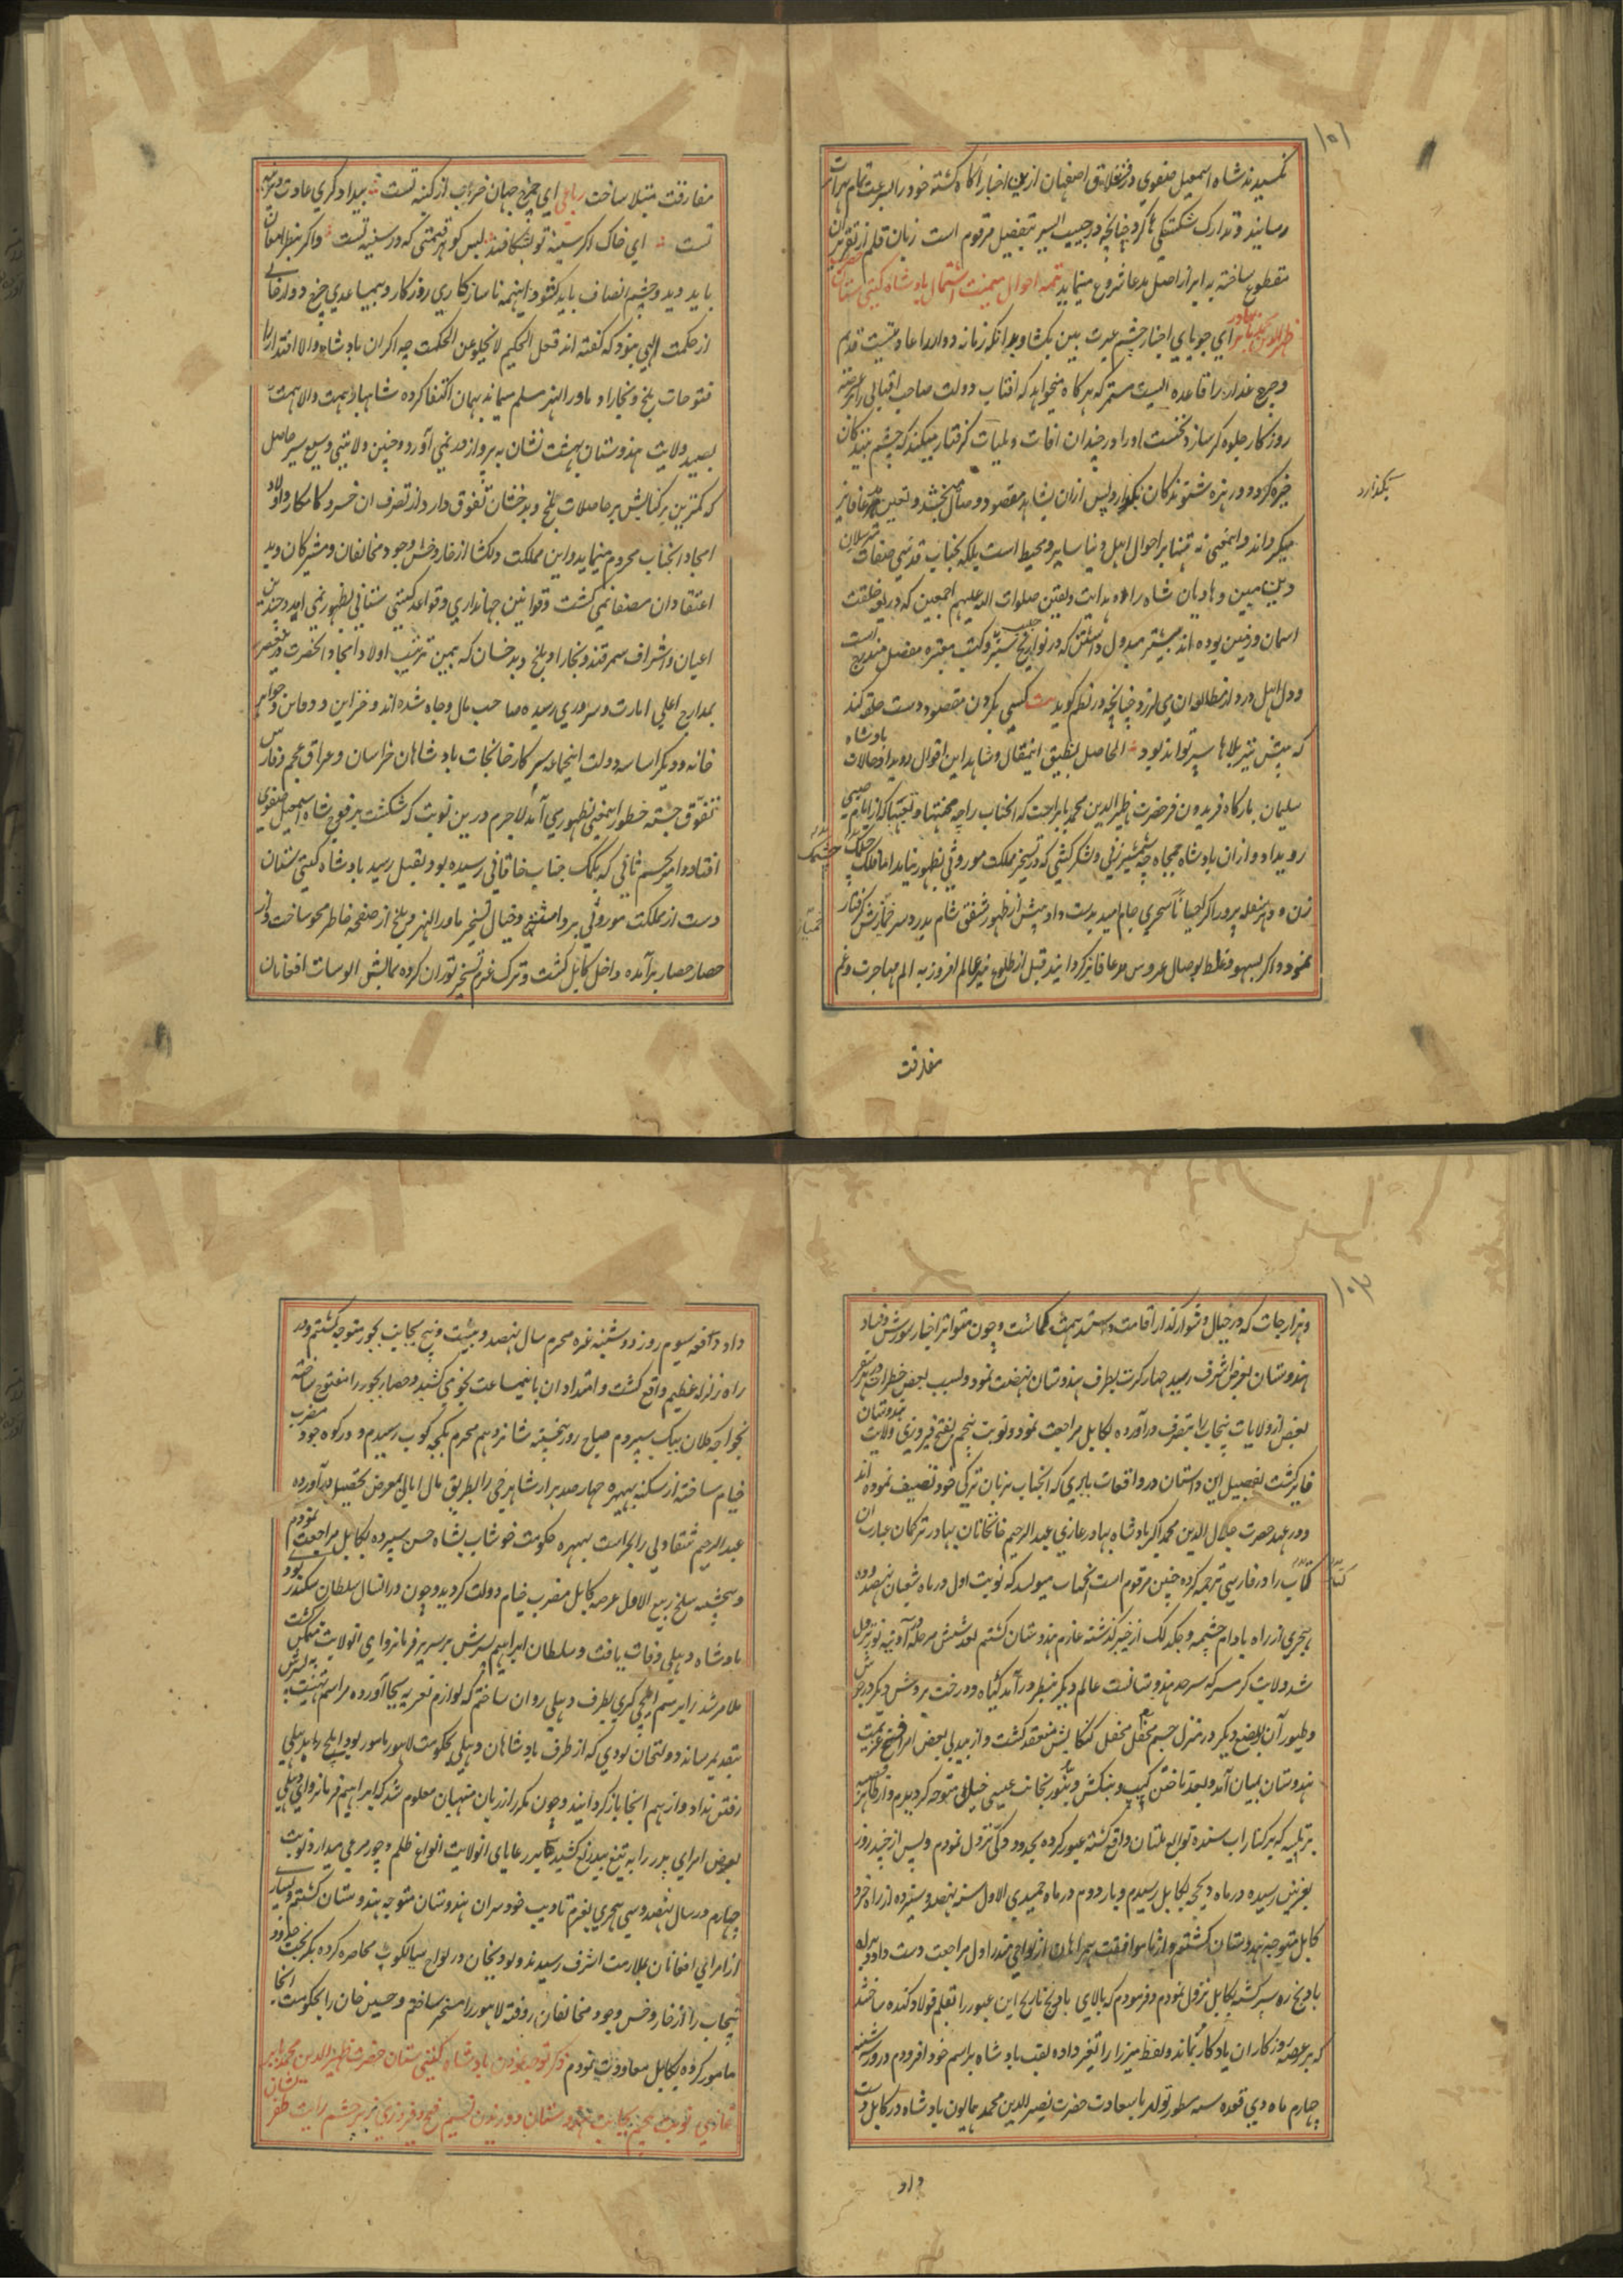 ۱۰۱
کمسیدند شاه اسمعیل صفوی در قشلاق اصفهان ازین اخبار آگاه گشته خود را بسرعت تمام بهرات
رسانید و تدارک شکستگی ها کرد چنانچه در حبیب السیر بتفصیل مرقوم است زبان قلم از تقریر آن
مقطوع ساخته به ایراز اصل مدعا شروع مینماید تتمه احوال میمنت اشتمال پادشاه گیتی ستان حضرت
ظهیرالدین محمد بابر بهادر ای جویای اخبار چشم عبرت بین بگشا و بدانکه زمانه دو الداعا دتیست قدیم
و چرخ غدار را قاعده ایست مستمر که هرگاه میخواهد که آفتاب دولت صاحب اقبالی را بر عرصه
روزگار جلوه گر سازد نخست او را در چندان آفات و بلیات گرفتار میکند که چشم بینندگان
خیره گردد و زهره شنوندگان بگدازد پس ازان بشاهد مقصود وصال بخشد و بتعین مدعا فایز
میگرداند و اینمعنی نه تنها بر احوال اهل دنیا سایر و محیط است بلکه بجناب قدسی صفات مرسلان
دین مبین و هادیان شاه راه هدایت و یقین صلوات الله علیهم اجمعین که در بدو خلقت
آسمان و زمین بوده اند بیشتر مبذول داشتن که در تواریخ حبیب السیر و کتب معتبره مفصل مندرج است
و دل اهل درد از مطالعه آن می لرزد چنانچه در نظم گوید بیت کسی بگردن مقصود دست حلقه کند
که پیش تیر بلاها سپر تواند بود الحاصل تطبیق اینمقال و شاهد این اقوال رویداد حالات پادشاه
سلیمان بارگاه فریدون فر حضرت ظهیرالدین محمد بابراجت که آنجناب را چه محنتها و تعبها که از ایام صبی
رویداد و ازان پادشاه جمجاه چه شمشیر زنی و لشکر کشی که در تسخیر مملکت موروثی بظهور نیامد اما فلک چشمک
زن و دهر سفله پرور اگر احیانا سحری جام امید بدست داد پیش از ظهور شفق شام بدرد سر خمارش گرفتار
نمود و اگر بسهو و غلط بوصال عروس مدعا فایز گردانید قبل از طلوع نیر عالم افروز به الم مهاجرت و غم
بگدازد
مفارقت
مفارقت مبتلا ساخت رباعی ای چرخ جهان خراب از کینه تست بیدادگری عادت دیرینه
تست ای خاک اگر سینه تو بشکافند بس گوهر قیمتی که در سینه تست و اگر بنظر امعان
باید دید و چشم انصاف باید گشود اینهمه ناسازگاری روزگار و بیمساعدی چرخ دوار فانی
از حکمت الهی بنود که گفته اند فعل الحکیم لا یخلو عن الحکمت چه اگر آن پادشاه والا اقتدار را
فتوحات بلخ و بخارا و ماورالنهر مسلم میماند بهمان اکتفا کرده شاهباز همت والا نهمت
بصید ولایت هندوستان بهشت نشان به پرواز در نمی آورد و چنین ولایتی وسیع سیر حاصل
که کمترین پرگنایش بر حاصلات بلخ و بدخشان تفوق دارد از تصرف آن خسرو کامکار و اولاد
امجاد آنجناب محروم مینماید و این مملکت دلکشا از خار و خس وجود مخالفان و مشرکان و بد
اعتقادان مصفا نمی گشت و قوانین جهانداری و قواعد گیتی ستانی بظهور نمی آمد و چندین
اعیان و اشراف سمرقند و بخارا و بلخ و بدخشان که بیمن تربیت اولاد امجاد آنحضرت در هر عصر
بمدارج اعلی امارت و سروری رسیده صاحب مال و جاه شده اند و خزاین و دفاین و جواهر
خانه و دیگر اساسه دولت اینجا بر سرکار خانجات پادشاهان خراسان و عراق عجم و فارس
تفوق جسته خطور اینمعنی بظهور می آمد لاجرم درین نوبت که شکست بر فوج شاه اسمعیل صفوی
افتاد و امیر نجم ثانی که بکمک جناب خاقانی رسیده بود بقتل رسید پادشاه گیتی ستان
دست از مملکت موروثی برداشته و خیال تسخیر ماورالنهر و بلخ از صفحه خاطر محو ساخت و از
حصار حصار برآمده داخل کابل گشت و ترک عزم تسخیر توران کرده بمالش الوسات افغانان
۱۰۲
و هزارجات که در جبال دشوار گذار اقامت داشتند همت گماشت و چون متواتر اخبار شورش و فساد
هندوستان بعرض اشرف رسید چهار کرت بطرف هندوستان نهضت نمود و بسبب بعض خطرات در هر سفر
بعض از ولایات پنجاب را بتصرف درآورده بکابل مراجعت نمود و نوبت پنجم بفتح فیروزی ولایت هندوستان
فایز گشت تفصیل این داستان در واقعات بابری که آنجناب بزبان ترکی خود تصنیف نموده اند
و در عهد حضرت جلال الدین محمد اکبر پادشاه بهادر غازی عبدالرحیم خانخانان بهادر ترکمان عبارت آن
کتاب را در فارسی ترجمه کرده چنین مرقوم است آنجناب میولید که نوبت اول در ماه شعبان نهصد و ده
هجری از راه بادام چشمه و جگدلک از خیبر گذشته عازم هندوستان گشتم بعد شش مرحله آدینه نور نزول
شد ولایت گرمسیر که سرحد هندوستانست عالم دیگر بنظر درآمد گیاه و درخت بروش دیگر وحوش
و طیور آن بوضع دیگر در منزل جم محفل کنکایش منعقد گشت و از بعض امرا فسخ عزیمت
هندوستان بمیان آمد و بعد تاختن کهپ و بنکش و بنور بجانب عیسی خیل متوجه گردیدم و از ظاهر قصبه
بر تیلیه که بر کنار آب سنده توابع ملتان واقع گشته عبور کرده بحدود دوکی نزول نمودم و پس از چند روز
بغزنین رسیده در ماه ذیحجه بکابل رسیدم و بار دوم در ماه جمیدی الاول سنه نهصد و سیزده از راه خرد
کابل متوجه هندوستان گشتم و از ناموافقت همراهان از نواحی مندراول مراجعت دست داد و براه
بادیخ ره سیر گشته بکابل نزول نمودم و فرمودم که بالای بادیخ تاریخ این عبور را بقلم فولاد کنده ساختند
که بر عرصه روزگاران یادگار بماند و لفظ میرزا را تغیر داده لقب پادشاه بر اسم خود افزودم در روز سه شنبه
چهارم ماه ذی قعده سنه سطور تولد باسعادت حضرت نصیرالدین محمد همایون پادشاه در کابل دست
داد
داد دفعه سیوم روز دوشنبه غره محرم سال نهصد و بیست و پنج بجانب بجور متوجه گشتم و در
راه زلزله عظیم واقع گشت و امتداد آن تا نیمساعت نجومی کشید و حصار بجور را مفتوح ساخته
بخواجه کلان بیک سپردم صباح روز پنجشنبه شانزدهم محرم بکچه کوب رسیدم و در کوه جود مضرب
خیام ساخته از سکنه بهیره چهار صد هزار شاهرخی را بطریق مال امانی بمعرض تحصیل درآورده
عبدالرحیم شقاولی را بحراست بهیره حکومت خوشاب بشاه حسن سپرده بکابل مراجعت نمودم
و پنجشنبه سلخ ربیع الاول عرصه کابل مضرب خیام دولت گردید و چون در آنسال سلطان سکندر لودی
پادشاه دهلی وفات یافت و سلطان ابراهیم پسرش بر سریر فرمانروای آنولایت متمکن گشت
ملا مرشد را برسم ایلچی گری بطرف دهلی روان ساختم که لوازم تعزیه بجا آورده مراسم تهنیت به پسرش
بتقدیم رساند دولتخان لودی که از طرف پادشاهان دهلی بحکومت لاهور مامور بود ایلچی را بدهلی
رفتن نداد و از هم آنجا بازگردانید و چون مکرر از زبان منهیان معلوم شد که ابراهیم فرمانروای دهلی
بعوض امرای پدر را به تیغ بیدریغ کشیده بر رعایای آنولایت انواع ظلم و جور مرعی میدارد نوبت
چهارم در سال نهصد و سی هجری بعزم تادیب خود سران هندوستان متوجه هندوستان گشتم و بسیاری
از امرای افغانان بملازمت اشرف رسیدند و لودیخان در نواح سیالکوت محاصره کرده بگریخت حدود
پنجاب را از خار و خس وجود مخالفان روفته لاهور را مسخر ساختم و حسین خان را بحکومت آنجا
مامور کرده بکابل معاودت نمودم ذکر توجه نمودن پادشاه گیتی ستان حضرت ظهیرالدین محمد بابر
غازی نوبت پنجم بجانب هندوستان و وزیدن نسیم فتح و فیروزی بر پرچم رایت ظفر نشان